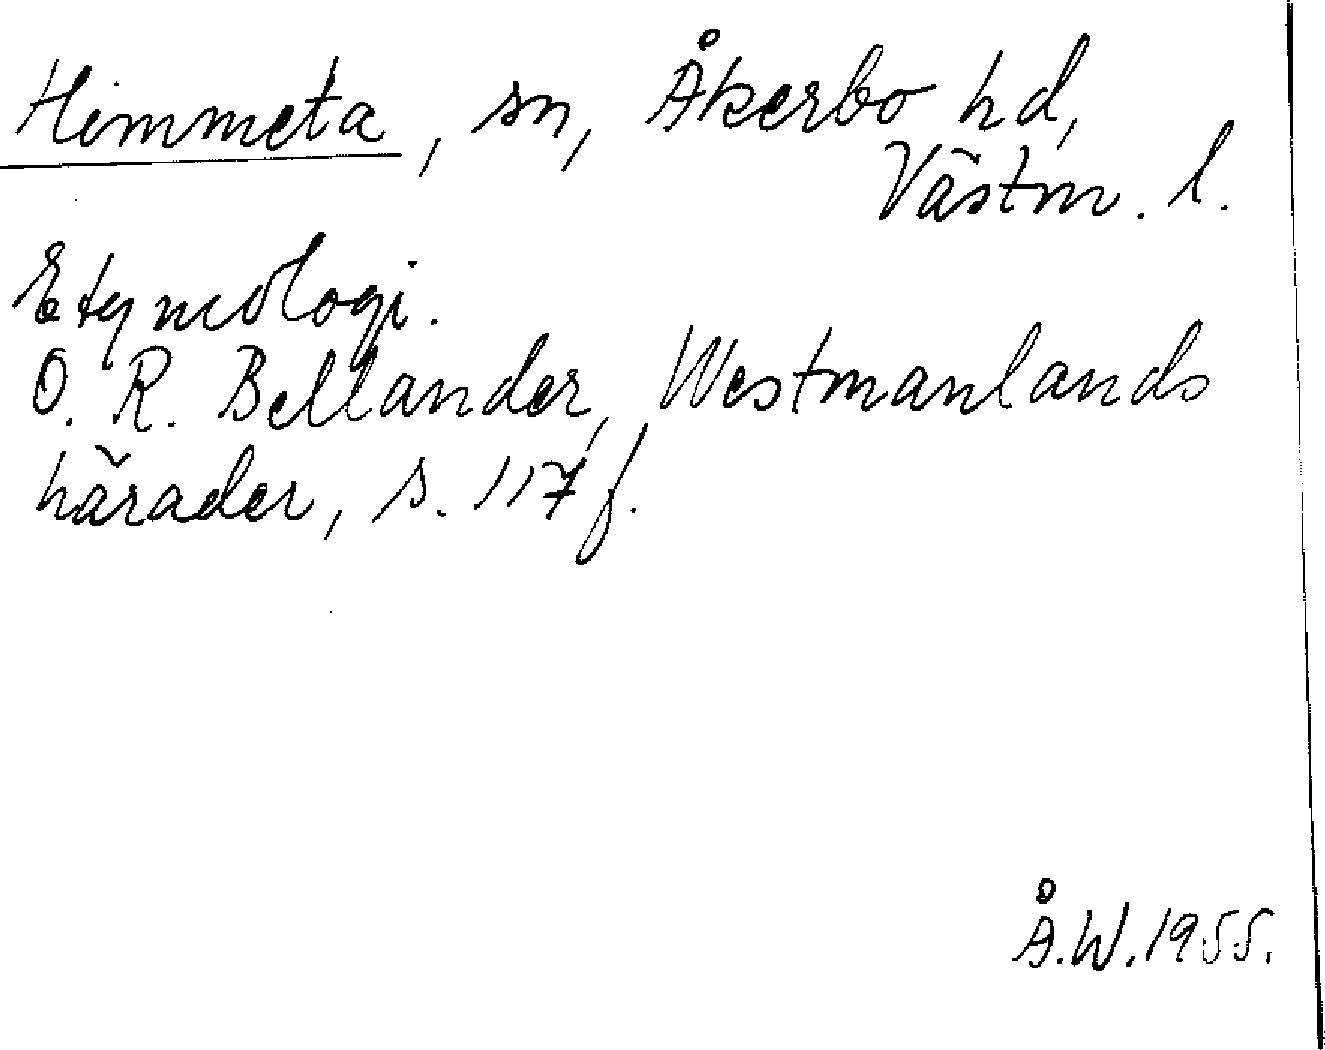 Himmeta, sn, Åkerbo hd,
Västm. l.
Etymologi.
O. R. Bellander, Westmanlands
härader, s. 117 f.
Å.W. 1955.